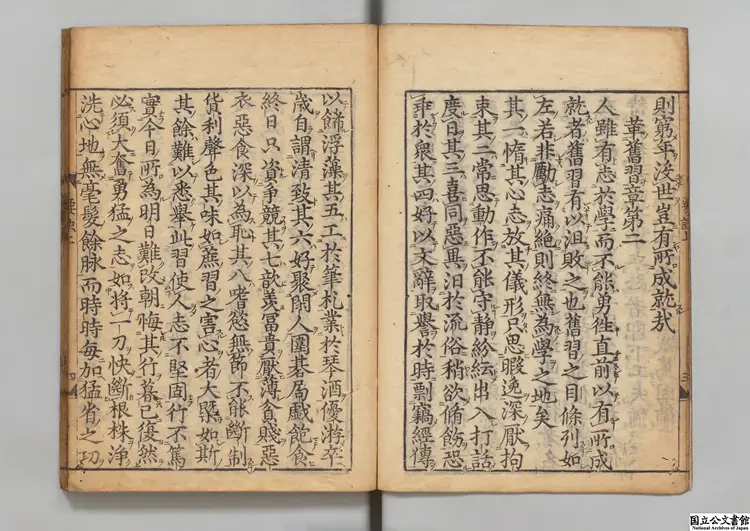 則窮年沒世豈有所成就哉
革舊習章第二
人雖有志於學而不能勇往直前以有所成
就者舊習有以沮敗之也舊習之目條列如
左若非勵志痛絶則終無為學之地矣
其一惰其心志放其儀形只思暇逸深厭拘
束其二常思動作不能守靜紛紜出入打話
度日其三喜同惡異汨於流俗稍欲脩飭恐
乖於衆其四好以文辭取譽於時剽竊經傳
以餙浮藻其五工於筆札業於琴酒優游卒
歲自謂清致其六好聚閑人圍碁局戲飽食
終日只資爭競其七歆羨冨貴厭薄貧賤惡
衣惡食深以為恥其八嗜慾無節不能斷制
貨利聲色其味如蔗習之害心者大槩如斯
其餘難以悉舉此習使人志不堅固行不篤
實今日所為明日難改朝悔其行暮已復然
必須大奮勇猛之志如將一刀快斷根株淨
洗心地無毫髮餘脉而時時每加猛省之功
国立公文書館
National Archives of Japan